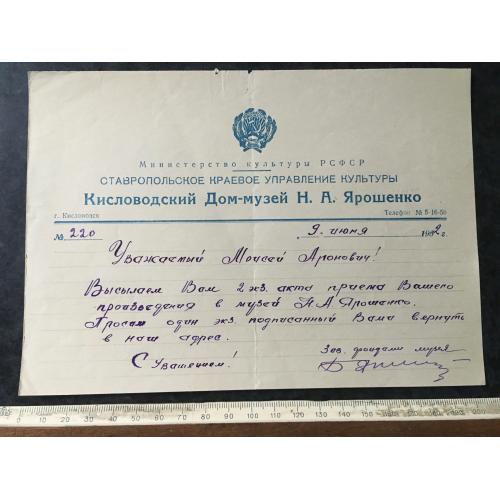 Министерство культуры РСФСР
СТАВРОПОЛЬСКОЕ КРАЕВОЕ УПРАВЛЕНИЕ КУЛЬТУРЫ
Кисловодский Дом-музей Н. А. Ярошенко
г. Кисловодск Телефон № 5-16-50
№ 220 9 июня 1962 г.
Уважаемый Моисей Аронович!
Высылаем Вам 2 экз. акта приема Вашего
произведения в музей Н.А. Ярошенко.
Просим один экз. подписанный Вами вернуть
в наш адрес.
С уважением!
Зав. фондами музея
0 10 20 30 40 50 60 70 80 90 100 110 120 130 140 150 160 170 180 190 200